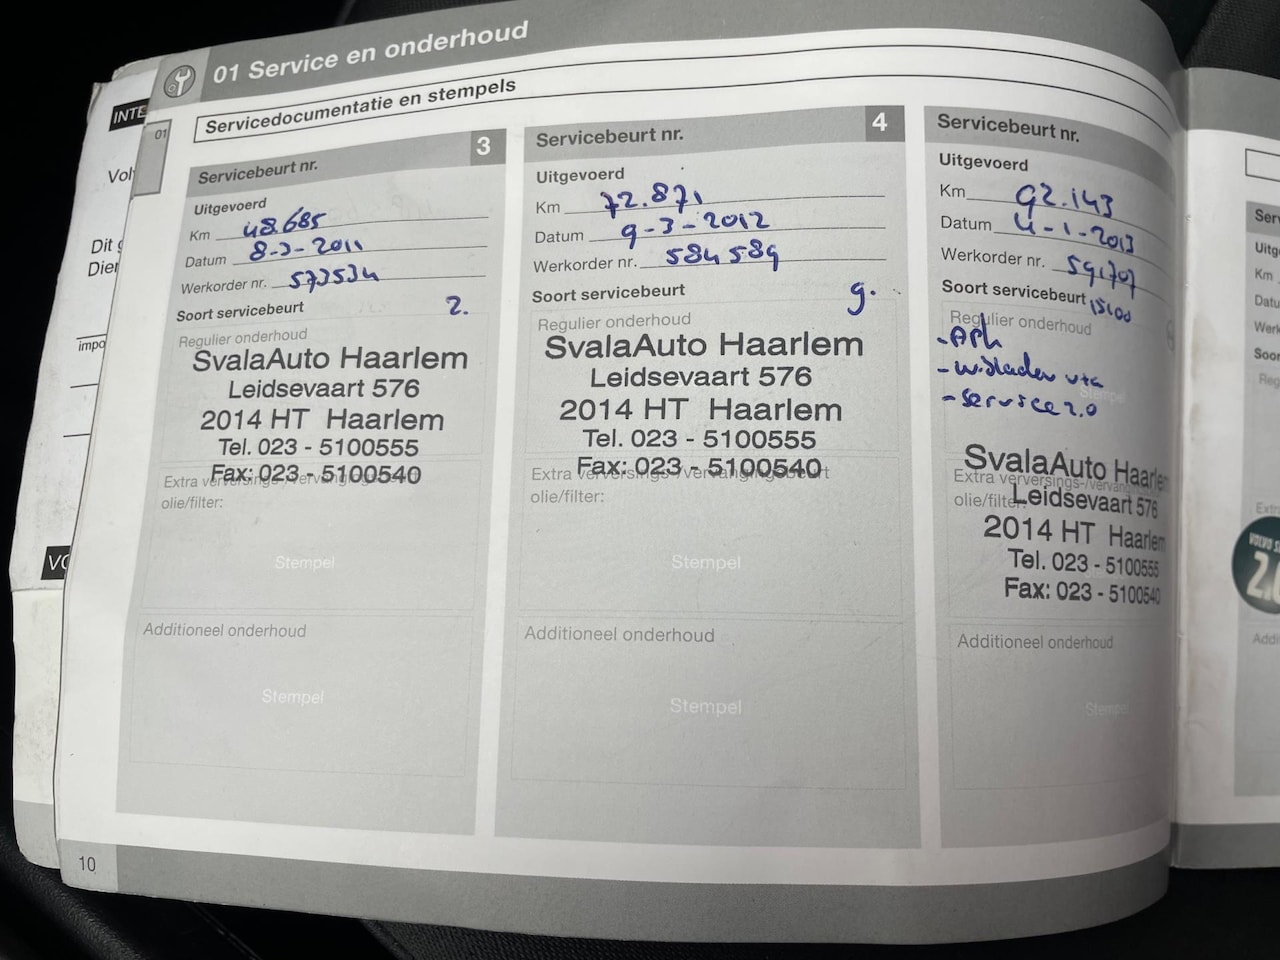 01 Service en onderhoud
Servicedocumentatie en stempels
01
INTE
Dit
impo
Servicebeurt nr. 3
Uitgevoerd
Km 48.685
Datum 8-3-2011
Werkorder nr. 573534
Soort servicebeurt
2.
Regulier onderhoud
SvalaAuto Haarlem
Leidsevaart 576
2014 HT Haarlem
Tel. 023 - 5100555
Fax: 023 - 5100540
Extra verversings-/vervangingsbeurt
olie/filter:
Stempel
Additioneel onderhoud
Stempel
Servicebeurt nr. 4
Uitgevoerd
Km 72.871
Datum 9-3-2012
Werkorder nr. 584589
Soort servicebeurt
9.
Regulier onderhoud
SvalaAuto Haarlem
Leidsevaart 576
2014 HT Haarlem
Tel. 023 - 5100555
Fax: 023 - 5100540
Extra verversings-/vervangingsbeurt
olie/filter:
Stempel
Additioneel onderhoud
Stempel
Servicebeurt nr.
Uitgevoerd
Km 92.143
Datum 4-1-2013
Werkorder nr. 591707
Soort servicebeurt
Regulier onderhoud
- APK
- service 2.0
Stempel
SvalaAuto Haarlem
Leidsevaart 576
2014 HT Haarlem
Tel. 023 - 5100555
Fax: 023 - 5100540
Extra verversings-/vervan
olie/filter:
Additioneel onderhoud
Stempel
Uitg
Km
Datu
Werk
Soor
VOLVO S
10